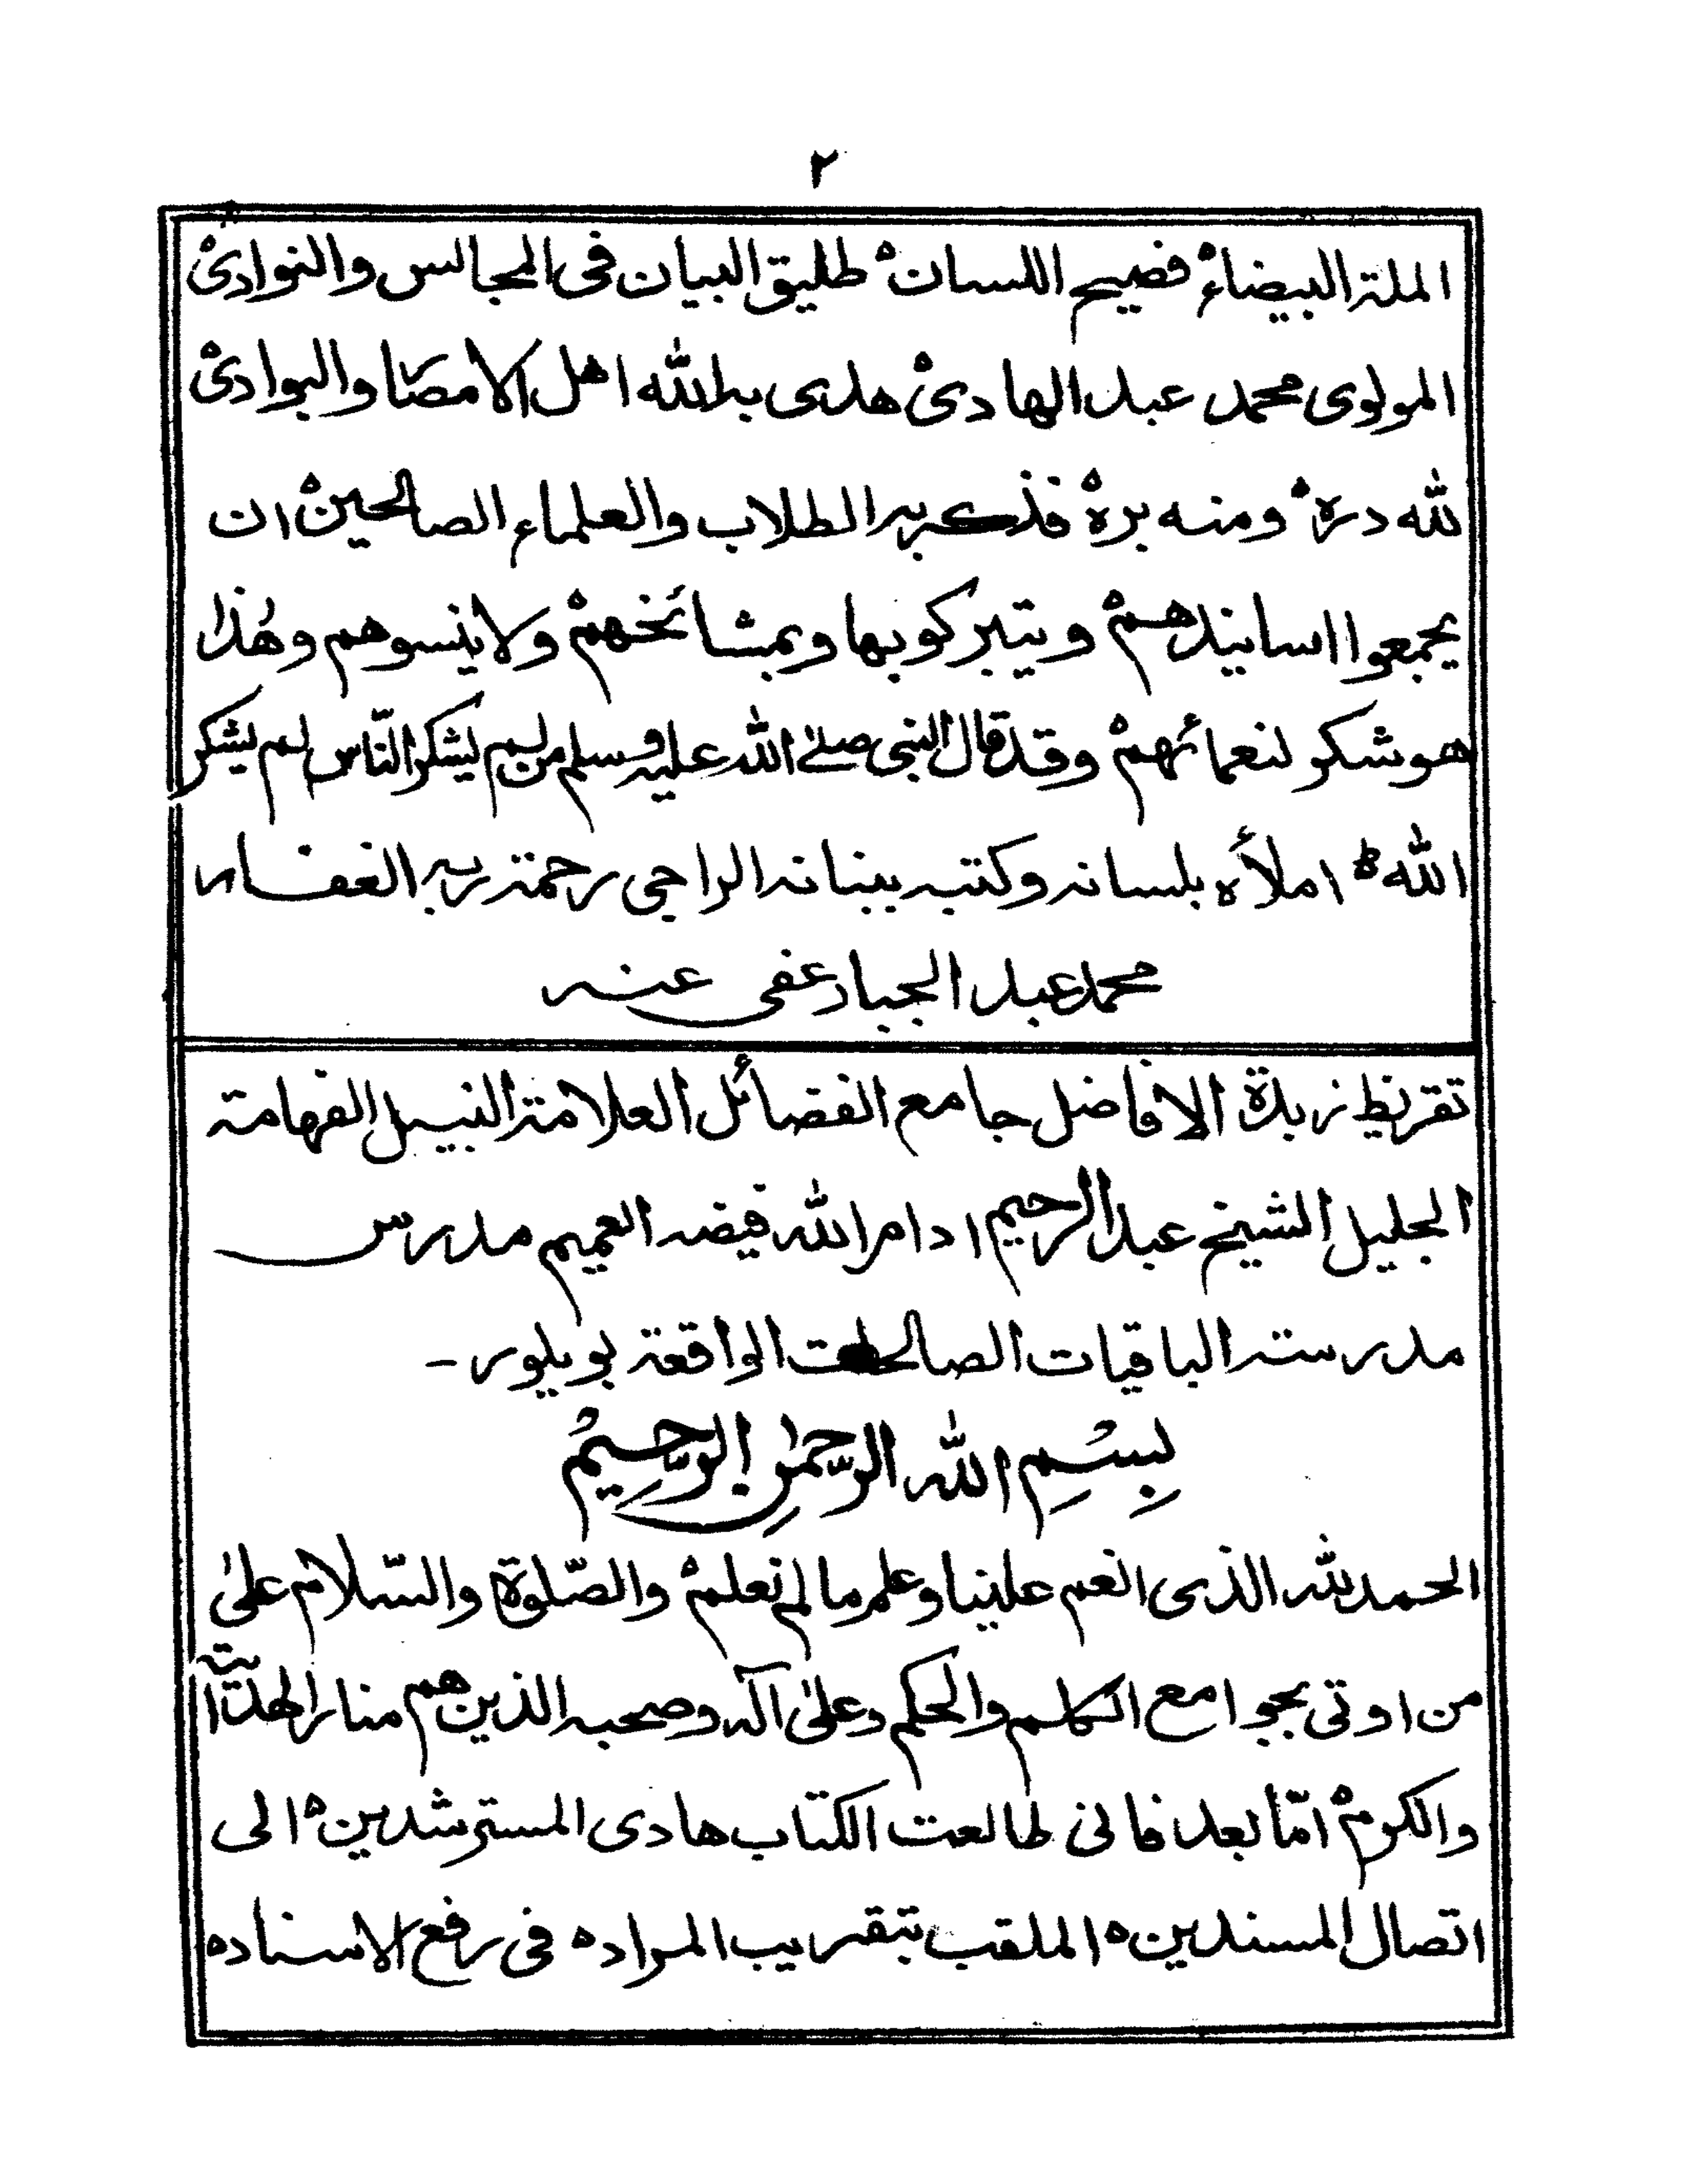 ٢
الملة البيضاءْ فصيح اللسان ْ طليق البيان فى المجالس والنوادىْ
المولوى محمد عبد الهادىْ هدى به الله اهل الامصار والبوادىْ
لله درهْ ومنه برهْ فذكر به الطلاب والعلماء الصالحينْ ان
يجمعوا اسانيدهمْ ويتبركو بها وبمشائخهمْ ولا ينسوهم وهٰذا
هو شكر لنعمائهمْ وقد قال النبى صلے الله عليه وسلم من لم يشكر النّاس لم يشكر
الله ط املأه بلسانه وكتبه ببنانه الراجى رحمة ربه الغفار
محمد عبد الجبار عفى عنه
تقريظ زبدة الافاضل جامع الفضائل العلامة النبيل الفهامة
الجليل الشيخ عبد الرحيم ادام الله فيضه العميم مدرس
مدرسته الباقيات الصالحات الواقعة بويلور -
بِسْمِ الله الرّحمٰنِ الرّحِيْم
الحمد لله الذى انعم علينا وعلم ما لم نعلمْ والصّلوة والسّلام علىٰ
من اوتى بجوامع الكلم والحكم وعلىٰ آله وصحبه الذين هم منار الهداية
والكرمْ امّا بعد فانى لما لعت الكتاب هادى المسترشدين ْ الى
اتصال المسندين ه الملقب بتقريب المراده فى رفع الاسناده